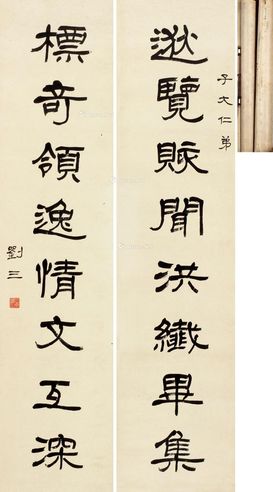 子大仁弟
逖覽賅聞洪纖畢集
標奇領逸情文互深
劉三